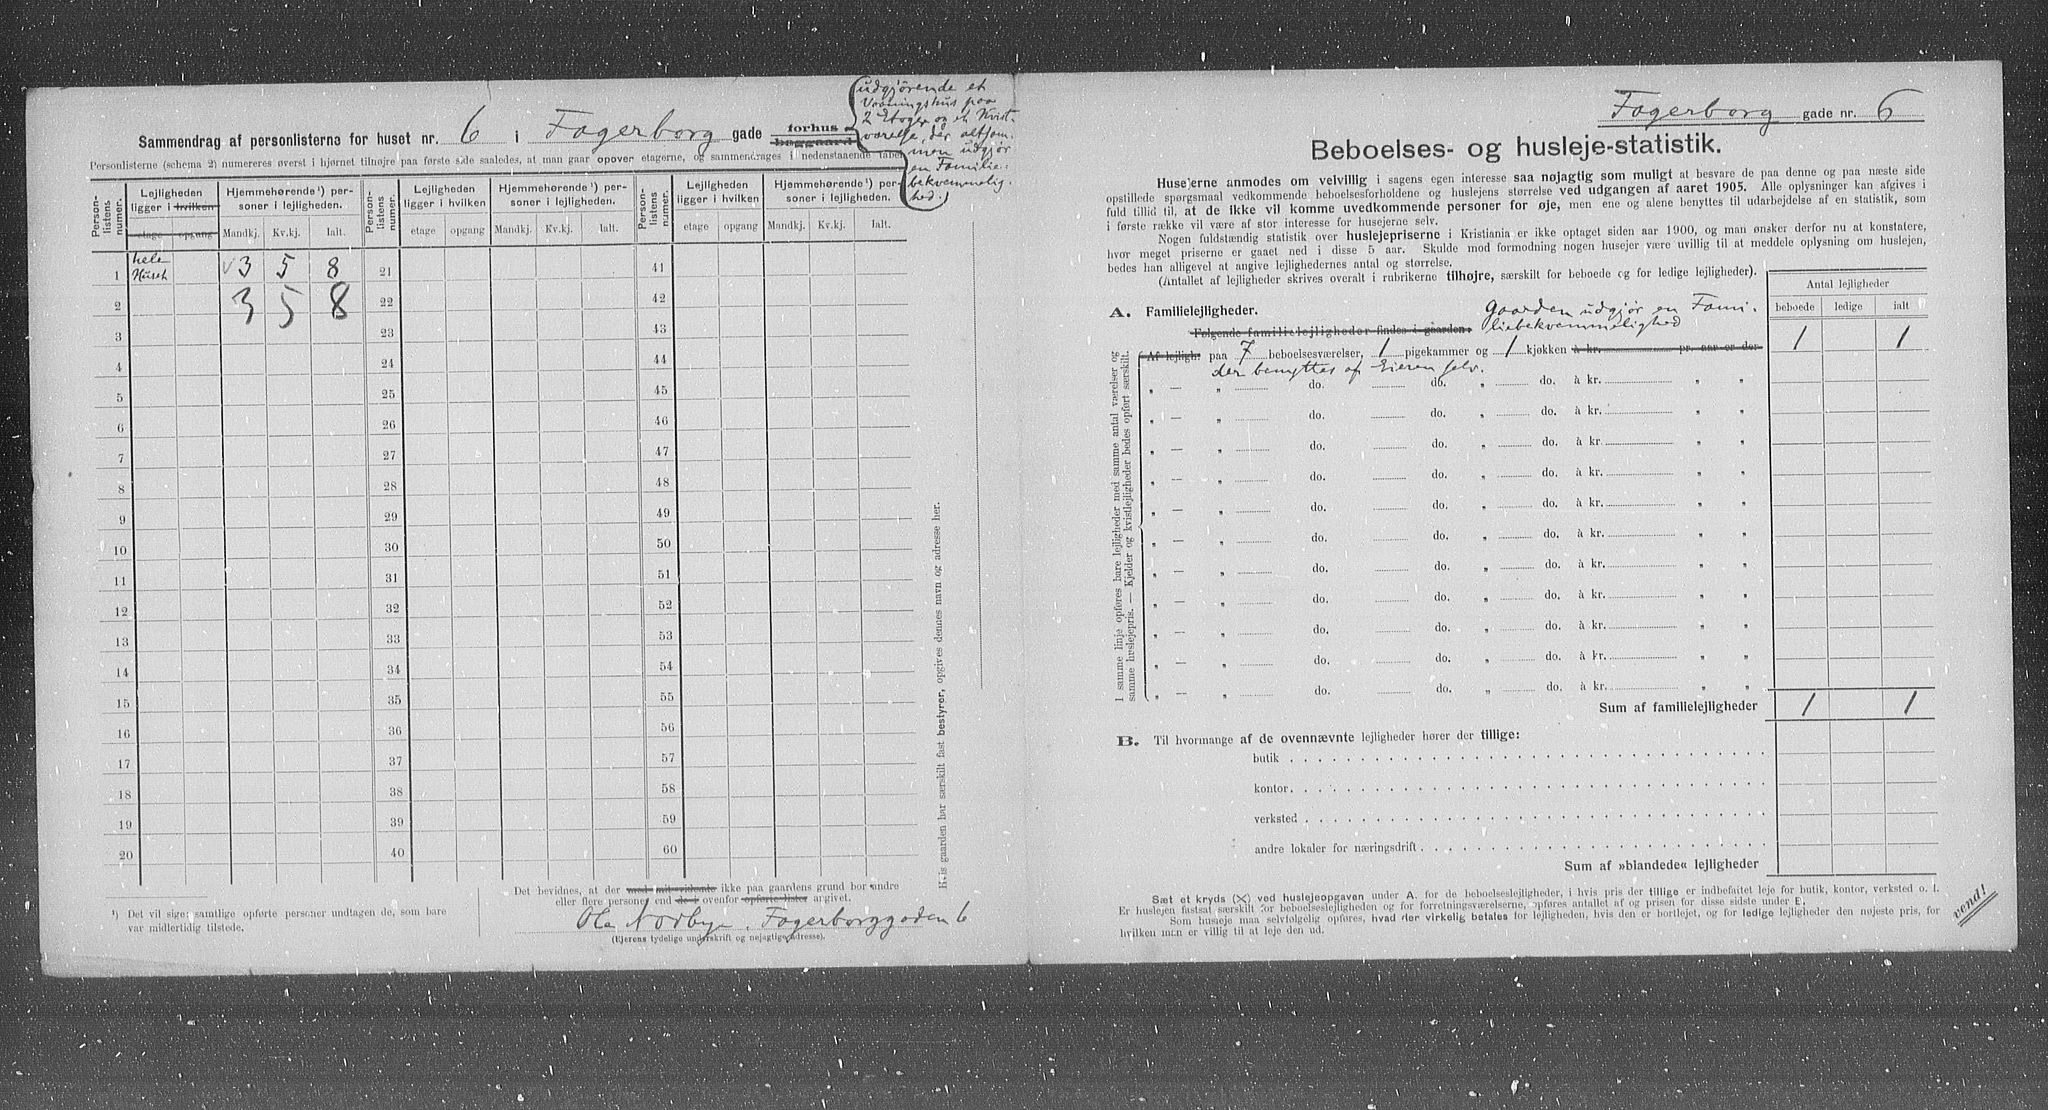 Sammendrag af personlisterne for huset nr. 6 i Fagerborg gade forhus
baggaard
udgjørende et
Vaaningshus paa
2 Etager og et Kvist-
værelse, der altsam-
men udgjør
en Familie-
bekvemmelig-
hed.
Personlisterne (schema 2) numereres øverst i hjørnet tilhøjre paa første side saaledes, at man gaar opover etagerne, og sammendrages i nedenstaaende tabel
Person-listens nummer. Lejligheden ligger i hvilken Hjemmehørende¹) personer i lejligheden. Person-listens numer. Lejligheden ligger i hvilken Hjemmehørende¹) personer i lejligheden. Person-listens numer. Lejligheden ligger i hvilken Hjemmehørende¹) personer i lejligheden.
etage opgang Mandkj. Kv.kj. Ialt. etage opgang Mandkj. Kv.kj. Ialt. etage opgang Mandkj. Kv.kj. Ialt.
1 hele Huset 3 5 8 21 41
2 3 5 8 22 42
3 23 43
4 24 44
5 25 45
6 26 46
7 27 47
8 28 48
9 29 49
10 30 50
11 31 51
12 32 52
13 33 53
14 34 54
15 35 55
16 36 56
17 37 57
18 38 58
19 39 59
20 40 60
Hvis gaarden har særskilt fast bestyrer, opgives dennes navn og adresse her.
¹) Det vil sige: samtlige opførte personer undtagen de, som bare
var midlertidig tilstede.
Det bevidnes, at der med mit vidende ikke paa gaardens grund bor andre
eller flere personer end de i ovenfor opførte lister angivet.
Ole Nordbye. Fagerborggaden 6
(Ejerens tydelige underskrift og nøjagtige adresse).
Fagerborg gade nr. 6
Beboelses- og husleje-statistik.
Husejerne anmodes om velvillig i sagens egen interesse saa nøjagtig som muligt at besvare de paa denne og paa næste side
opstillede spørgsmaal vedkommende beboelsesforholdene og huslejens størrelse ved udgangen af aaret 1905. Alle oplysninger kan afgives i
fuld tillid til, at de ikke vil komme uvedkommende personer for øje, men ene og alene benyttes til udarbejdelse af en statistik, som
i første række vil være af stor interesse for husejerne selv.
Nogen fuldstændig statistik over huslejepriserne i Kristiania er ikke optaget siden aar 1900, og man ønsker derfor nu at konstatere,
hvor meget priserne er gaaet ned i disse 5 aar. Skulde mod formodning nogen husejer være uvillig til at meddele oplysning om huslejen,
bedes han alligevel at angive lejlighedernes antal og størrelse.
(Antallet af lejligheder skrives overalt i rubrikerne tilhøjre, særskilt for beboede og for ledige lejligheder).
Antal lejligheder
beboede ledige ialt
A. Familielejligheder.
Gaarden udgjør en Fami-
Følgende familielejligheder findes i gaarden: liebekvemmelighed
Af lejligh paa 7 beboelsesværelser, 1 pigekammer og 1 kjøkken à kr. pr. aar er der 1 1
der benyttes af Eieren selv.
„ — „ do. do. „ do. à kr. „ „
„ — „ do. do. „ do. à kr. „ „
„ — „ do. do. „ do. à kr. „ „
„ — „ do. do. „ do. à kr. „ „
„ — „ do. do. „ do. à kr. „ „
„ — „ do. do. „ do. à kr. „ „
„ — „ do. do. „ do. à kr. „ „
„ — „ do. do. „ do. à kr. „ „
„ — „ do. do. „ do. à kr. „ „
„ — „ do. do. „ do. à kr. „ „
„ — „ do. do. „ do. à kr. „ „
I samme linje opføres bare lejligheder med samme antal værelser og
samme huslejepris. — Kjelder og kvistlejligheder bedes opført særskilt.
Sum af familielejligheder 1 1
B. Til hvormange af de ovennævnte lejligheder hører der tillige:
butik
kontor
verksted
andre lokaler for næringsdrift
Sum af »blandede« lejligheder
Sæt et kryds (X) ved huslejeopgaven under A. for de beboelseslejligheder, i hvis pris der tillige er indbefattet leje for butik, kontor, verksted o. l.
Er huslejen fastsat særskilt for beboelseslejligheden og for forretningsværelserne, opføres antallet af og prisen for disse sidste under E.
Som husleje maa selvfølgelig opføres, hvad der virkelig betales for lejligheden, hvis den er bortlejet, og for ledige lejligheder den nøjeste pris, for
hvilken man er villig til at leje den ud.
vend!